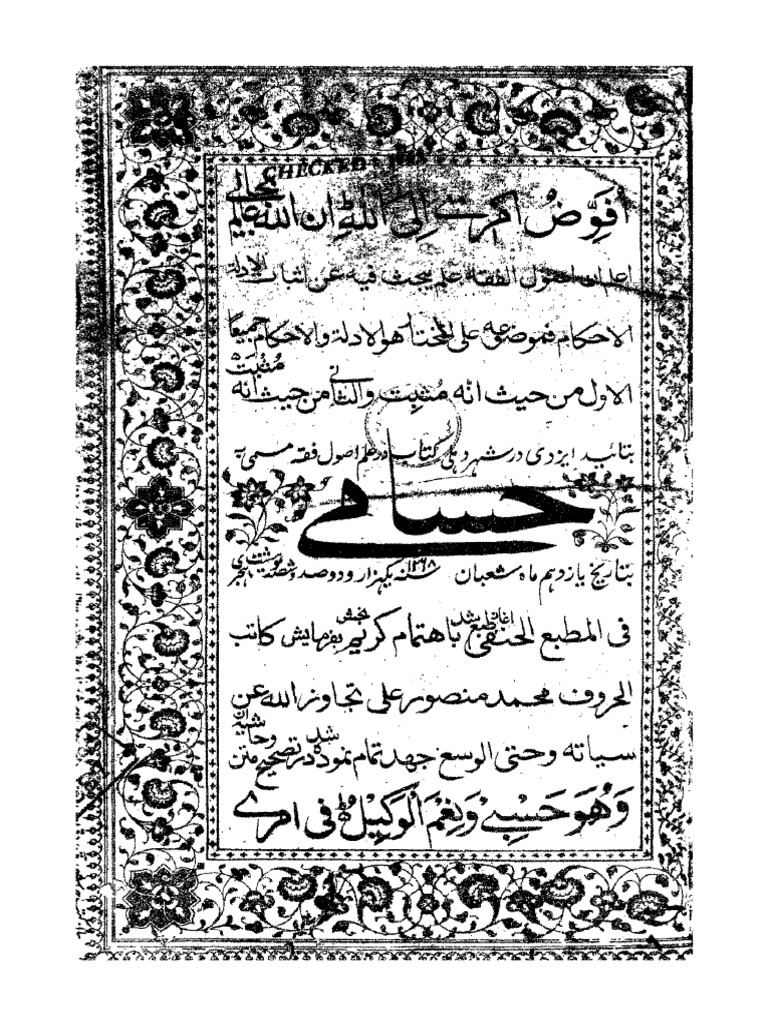 CHECKED
أفوض أمري إلى الله إن الله عليم بحالي
اعلم ان اصول الفقه علم يبحث فيه عن اثبات الادلة
الاحكام فموضوعه على المختار هو الادلة والاحكام جميعا
الاول من حيث انه مثبت والثاني من حيث انه مثبت
بتائید ایزدی در شهر دہلی کتاب در علم اصول فقہ مسمی بہ
حسامی
بتاریخ یازدہم ماہ شعبان سنہ ۱۲۶۸ یکہزار و دو صد و شصت و ہشت ہجری
فی المطبع الحنفی آغاز طبع شد باہتمام کریم بخش بفرمایش کاتب
الحروف محمد منصور علی تجاوز الله عن
سیأته وحتی الوسع جہد تمام نموده شد در تصحیح متن و حاشیہ آن
وَهُوَ حَسْبِيْ وَنِعْمَ الْوَكِيْلُ فی امری